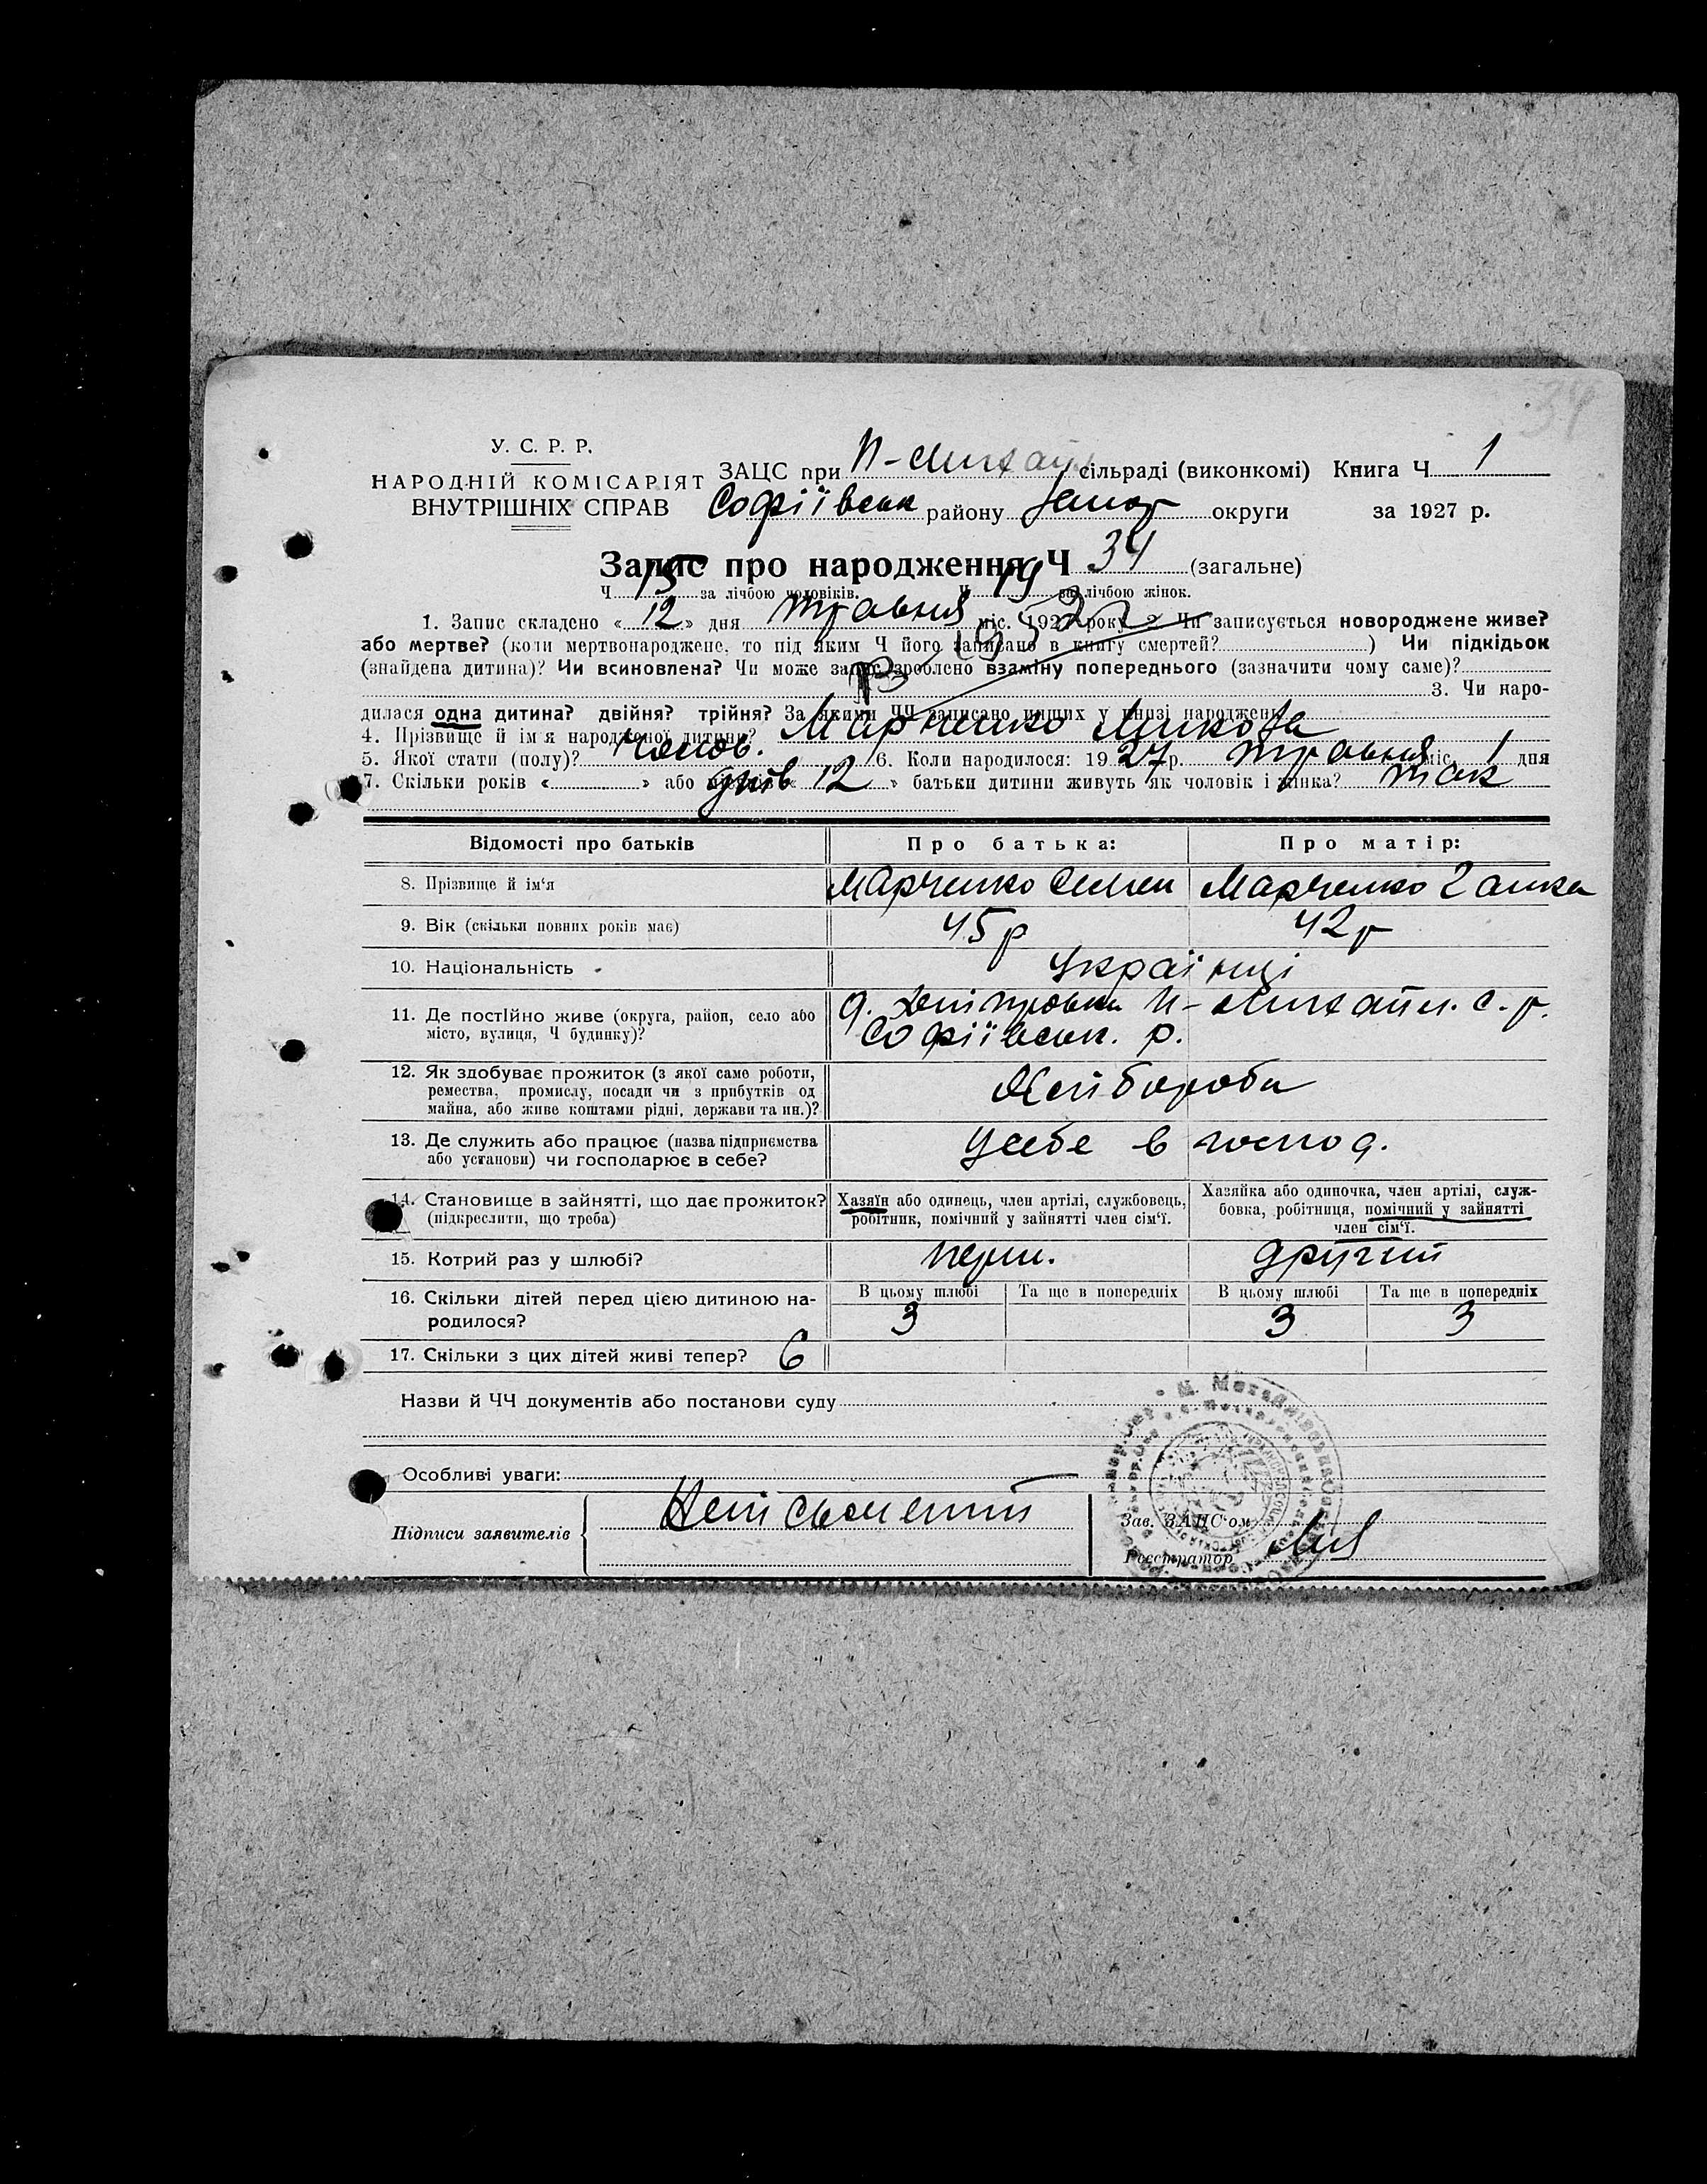 34
У. С. Р. Р.
НАРОДНІЙ КОМІСАРІЯТ
ВНУТРІШНІХ СПРАВ
ЗАЦС при сільраді (виконкомі) Книга Ч 1
Софіївськ району округи за 1927 р.
Запис про народження Ч 34 (загальне)
Ч 15 за лічбою чоловіків. Ч 19 за лічбою жінок.
1. Запис складено «12» дня травня міс. 192 року 2. Чи записується новороджене живе?
або мертве? (коли мертвонароджене, то під яким Ч його записано в книгу смертей? ) Чи підкідьок
(знайдена дитина)? Чи всиновлена? Чи може запис зроблено взаміну попереднього (зазначити чому саме)?
3. Чи наро-
дилася одна дитина? двійня? трійня? За якими ЧЧ записано инших у книзі народжень
4. Прізвище й ім'я народженої дитини? Марченко Микола
5. Якої стати (полу)? чолов. 6. Коли народилося: 1927 р. травня міс. 1 дня
7. Скільки років « » або днів 12 » батьки дитини живуть як чоловік і жінка? так
Відомості про батьків Про батька: Про матір:
8. Прізвище й ім'я Марченко Семен Марченко Ганка
9. Вік (скільки повних років має) 45 р 42 р
10. Національність Українці
11. Де постійно живе (округа, район, село або
місто, вулиця, Ч будинку)?
Софіївськ. р.
12. Як здобуває прожиток (з якої саме роботи,
ремества, промислу, посади чи з прибутків од
майна, або живе коштами рідні, держави та ин.)?
Хлібороби
13. Де служить або працює (назва підприємства
або установи) чи господарює в себе?
У себе в господ.
14. Становище в зайнятті, що дає прожиток?
(підкреслити, що треба)
Хазяїн або одинець, член артілі, службовець,
робітник, помічний у зайнятті член сім'ї.
Хазяйка або одиночка, член артілі, служ-
бовка, робітниця, помічний у зайнятті
член сім'ї.
15. Котрий раз у шлюбі? перш. другий
16. Скільки дітей перед цією дитиною на-
родилося?
В цьому шлюбі Та ще в попередніх В цьому шлюбі Та ще в попередніх
3 3 3
17. Скільки з цих дітей живі тепер? 6
Назви й ЧЧ документів або постанови суду
Особливі уваги:
Підписи заявителів
Неписьменний
Зав. ЗАЦС'ом
Реєстратор